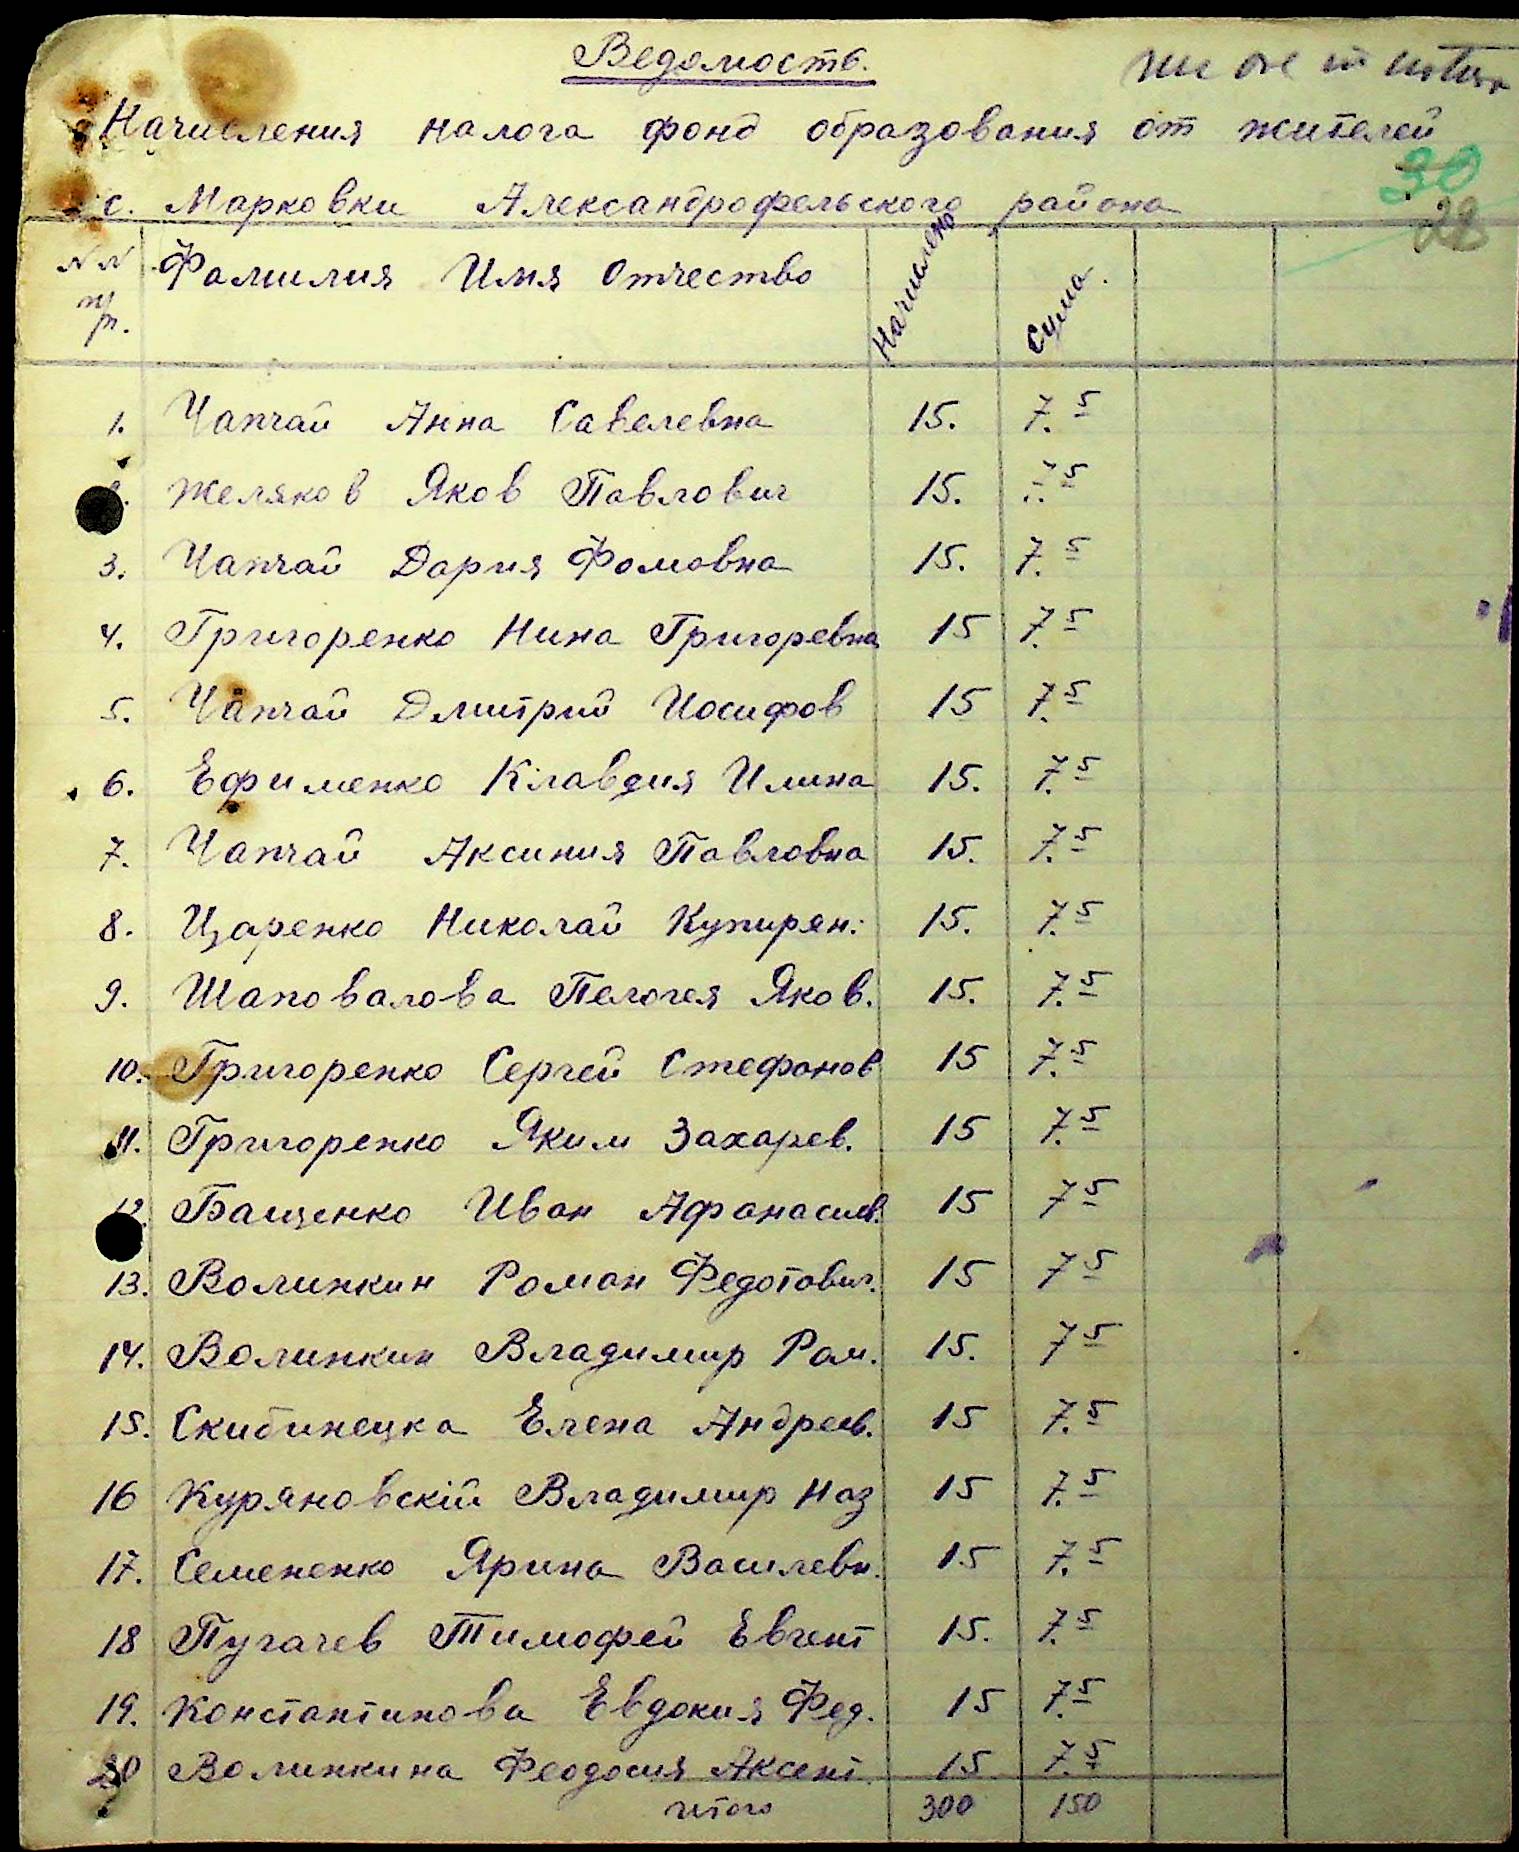 Ведомость.
Начисления налога фонд образования от жителей
30
с. Марковки Александрофельского района
28
№№ п/п. Фамилия Имя Отчество Начислено Сума.
1. Чапчай Анна Савелевна 15. 7.5
Желяков Яков Павлович 15. 5
3. Чапчай Дария Фомовна 15. 7.5
4. Григоренко Нина Григоревна 15 7.5
5. Чапчай Дмитрий Иосифов 15 7.5
6. Ефименко Клавдия Илина 15. 7.5
7. Чапчай Аксиния Павловна 15. 7.5
8. Царенко Николай Купирян: 15. 7.5
9. Шаповалова Пелогея Яков. 15. 7.5
10. Григоренко Сергей Стефонов 15 7.5
11. Григоренко Яким Захарев. 15 7.5
12. Бащенко Иван Афанасиев. 15 7 5
13. Волинкин Роман Федотович. 15 7 5
14. Волинкин Владимир Ром. 15. 7 5
15. Скибинецка Елена Андреев. 15 7.5
16 Куряновскій Владимир Наз 15 7.5
17. Семененко Ярина Василевн. 15 7.5
18 Пугачев Тимофей Евгент 15. 7.5
19. Константинова Евдокия Фед. 15 7.5
20 Волинкина Феодосия Аксент. 15 7.5
итого 300 150